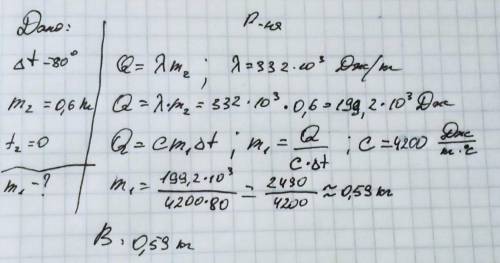 Дано:
Δt - 80°
m₂ = 0,6 кг
t₂ = 0
m₁ - ?
Р-ня
Q = λm₂ ; λ = 332·10³ Дж/кг
Q = λ·m₂ = 332·10³·0,6 = 199,2·10³ Дж
Q = cm₁Δt ; m₁ = Q / c·Δt ; c = 4200 Дж / кг·°C
m₁ = 199,2·10³ / 4200·80 = 2490 / 4200 ≈ 0,59 кг
В: 0,59 кг